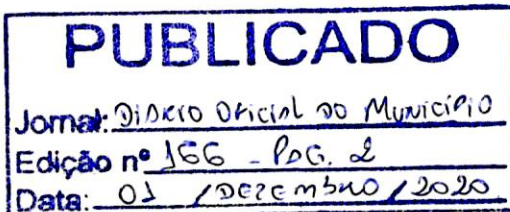 PUBLICADO
Jornal: Diário Oficial do Município
Edição nº 166 - PÁG. 2
Data: 01 / DEZEMBRO / 2020